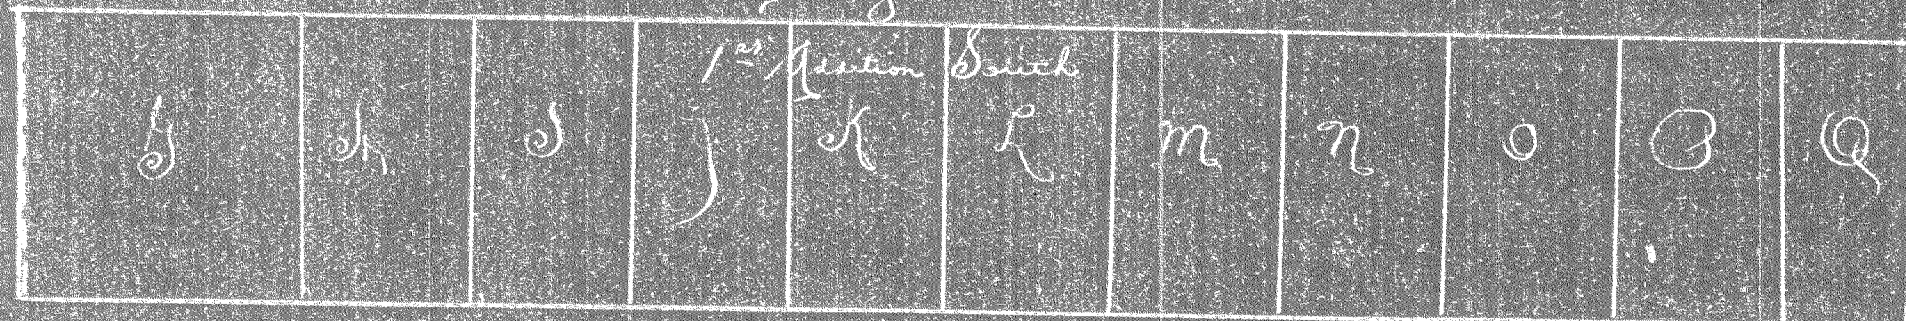 1st Addition South
G H I J K L M N O P Q